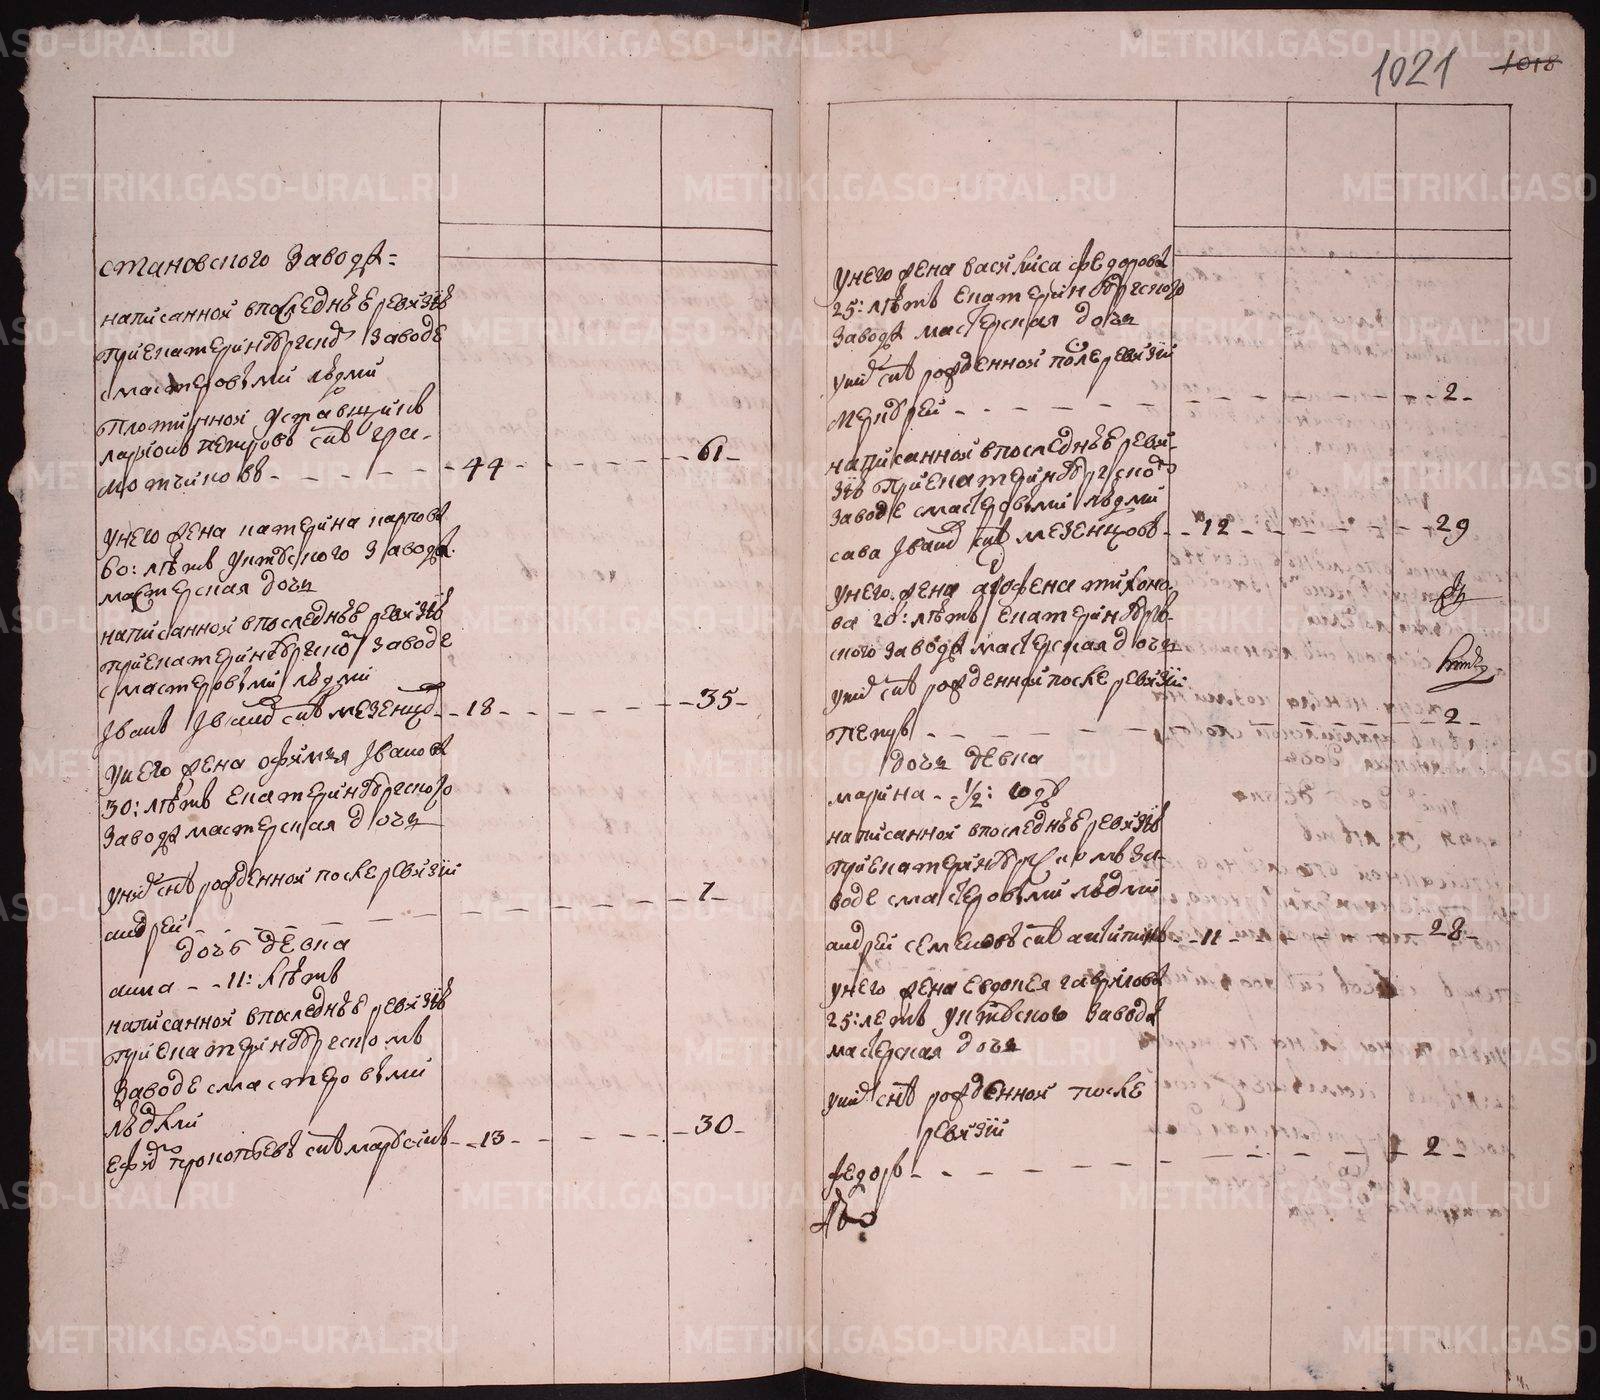 1021
1018
становского заводу=
написанной впоследнѣе ревизiѣ
приекатеринбургскд заводе
смастеровыми людми
Плотинной Уставщикъ
ларiонъ петровъ снъ
мотчиновъ - - - - - 44 - - - - 61
унего жена катерина карпова
60: лѣтъ уктускаго завода
мастерская дочь
написанной впоследнѣе ревизiѣ
приекатеринбургско заводе
смастеровыми людми
Iванъ Iвановъ снъ мезенцо - - 18 - - - - 35
унего жена офимья Iванова
30: лѣтъ Екатеринбурского
завода мастерская дочь
униx снъ рожденной после ревизiи
андрей - - - - - 1
дочь девка
анна - - 11: лѣтъ
написанной впоследнѣе ревизiѣ
приекатеринбургскомъ
заводе смастеровыми
людми
прокопьевъ снъ - - 13 - - - - 30
унего жена василиса федорова
25: лѣтъ Екатеринбургского
завода мастерская дочь
униx снъ рожденной после ревизiи
- - - - - 2
написанной впоследнѣе реви-
зiѣ приекатеринбургско
заводе смастеровыми людми
сава Iвановъ снъ мезенцовъ - - 12 - - - - 29
унего жена агафена тихоно-
ва 20: лѣтъ Екатеринбург-
ского завода мастерская дочь
униx снъ рожденной после ревизiи
Петръ - - - - - 2
дочь девка
марина - - 1/2: году
написанной впоследнѣе ревизiѣ
приекатеринбургскомъ за-
воде смастеровыми людми
андрей семеновъ снъ антипинъ - - 11 - - - - 28
унего жена Евдокея гаврилова
25: летъ уктуского завода
мастерская дочь
униx снъ рожденной после
ревизiи
федоръ - - - - - 2